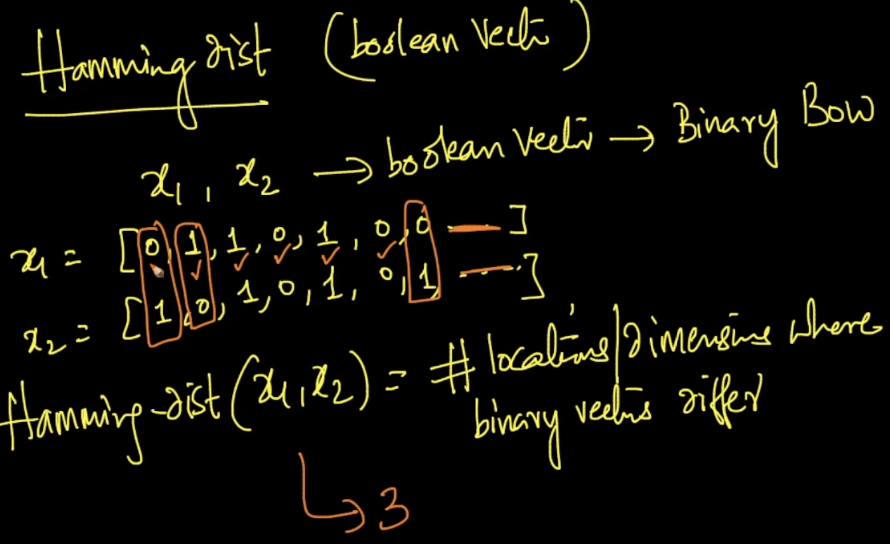 Hamming dist (boolean vector)
x₁, x₂ → boolean vector → Binary BOW
x₁ = [0, 1, 1, 0, 1, 0, 0 — ]
x₂ = [1, 0, 1, 0, 1, 0, 1, ---- ]
Hamming-dist(x₁, x₂) = # locations/dimensions where
binary vectors differ
↳ 3